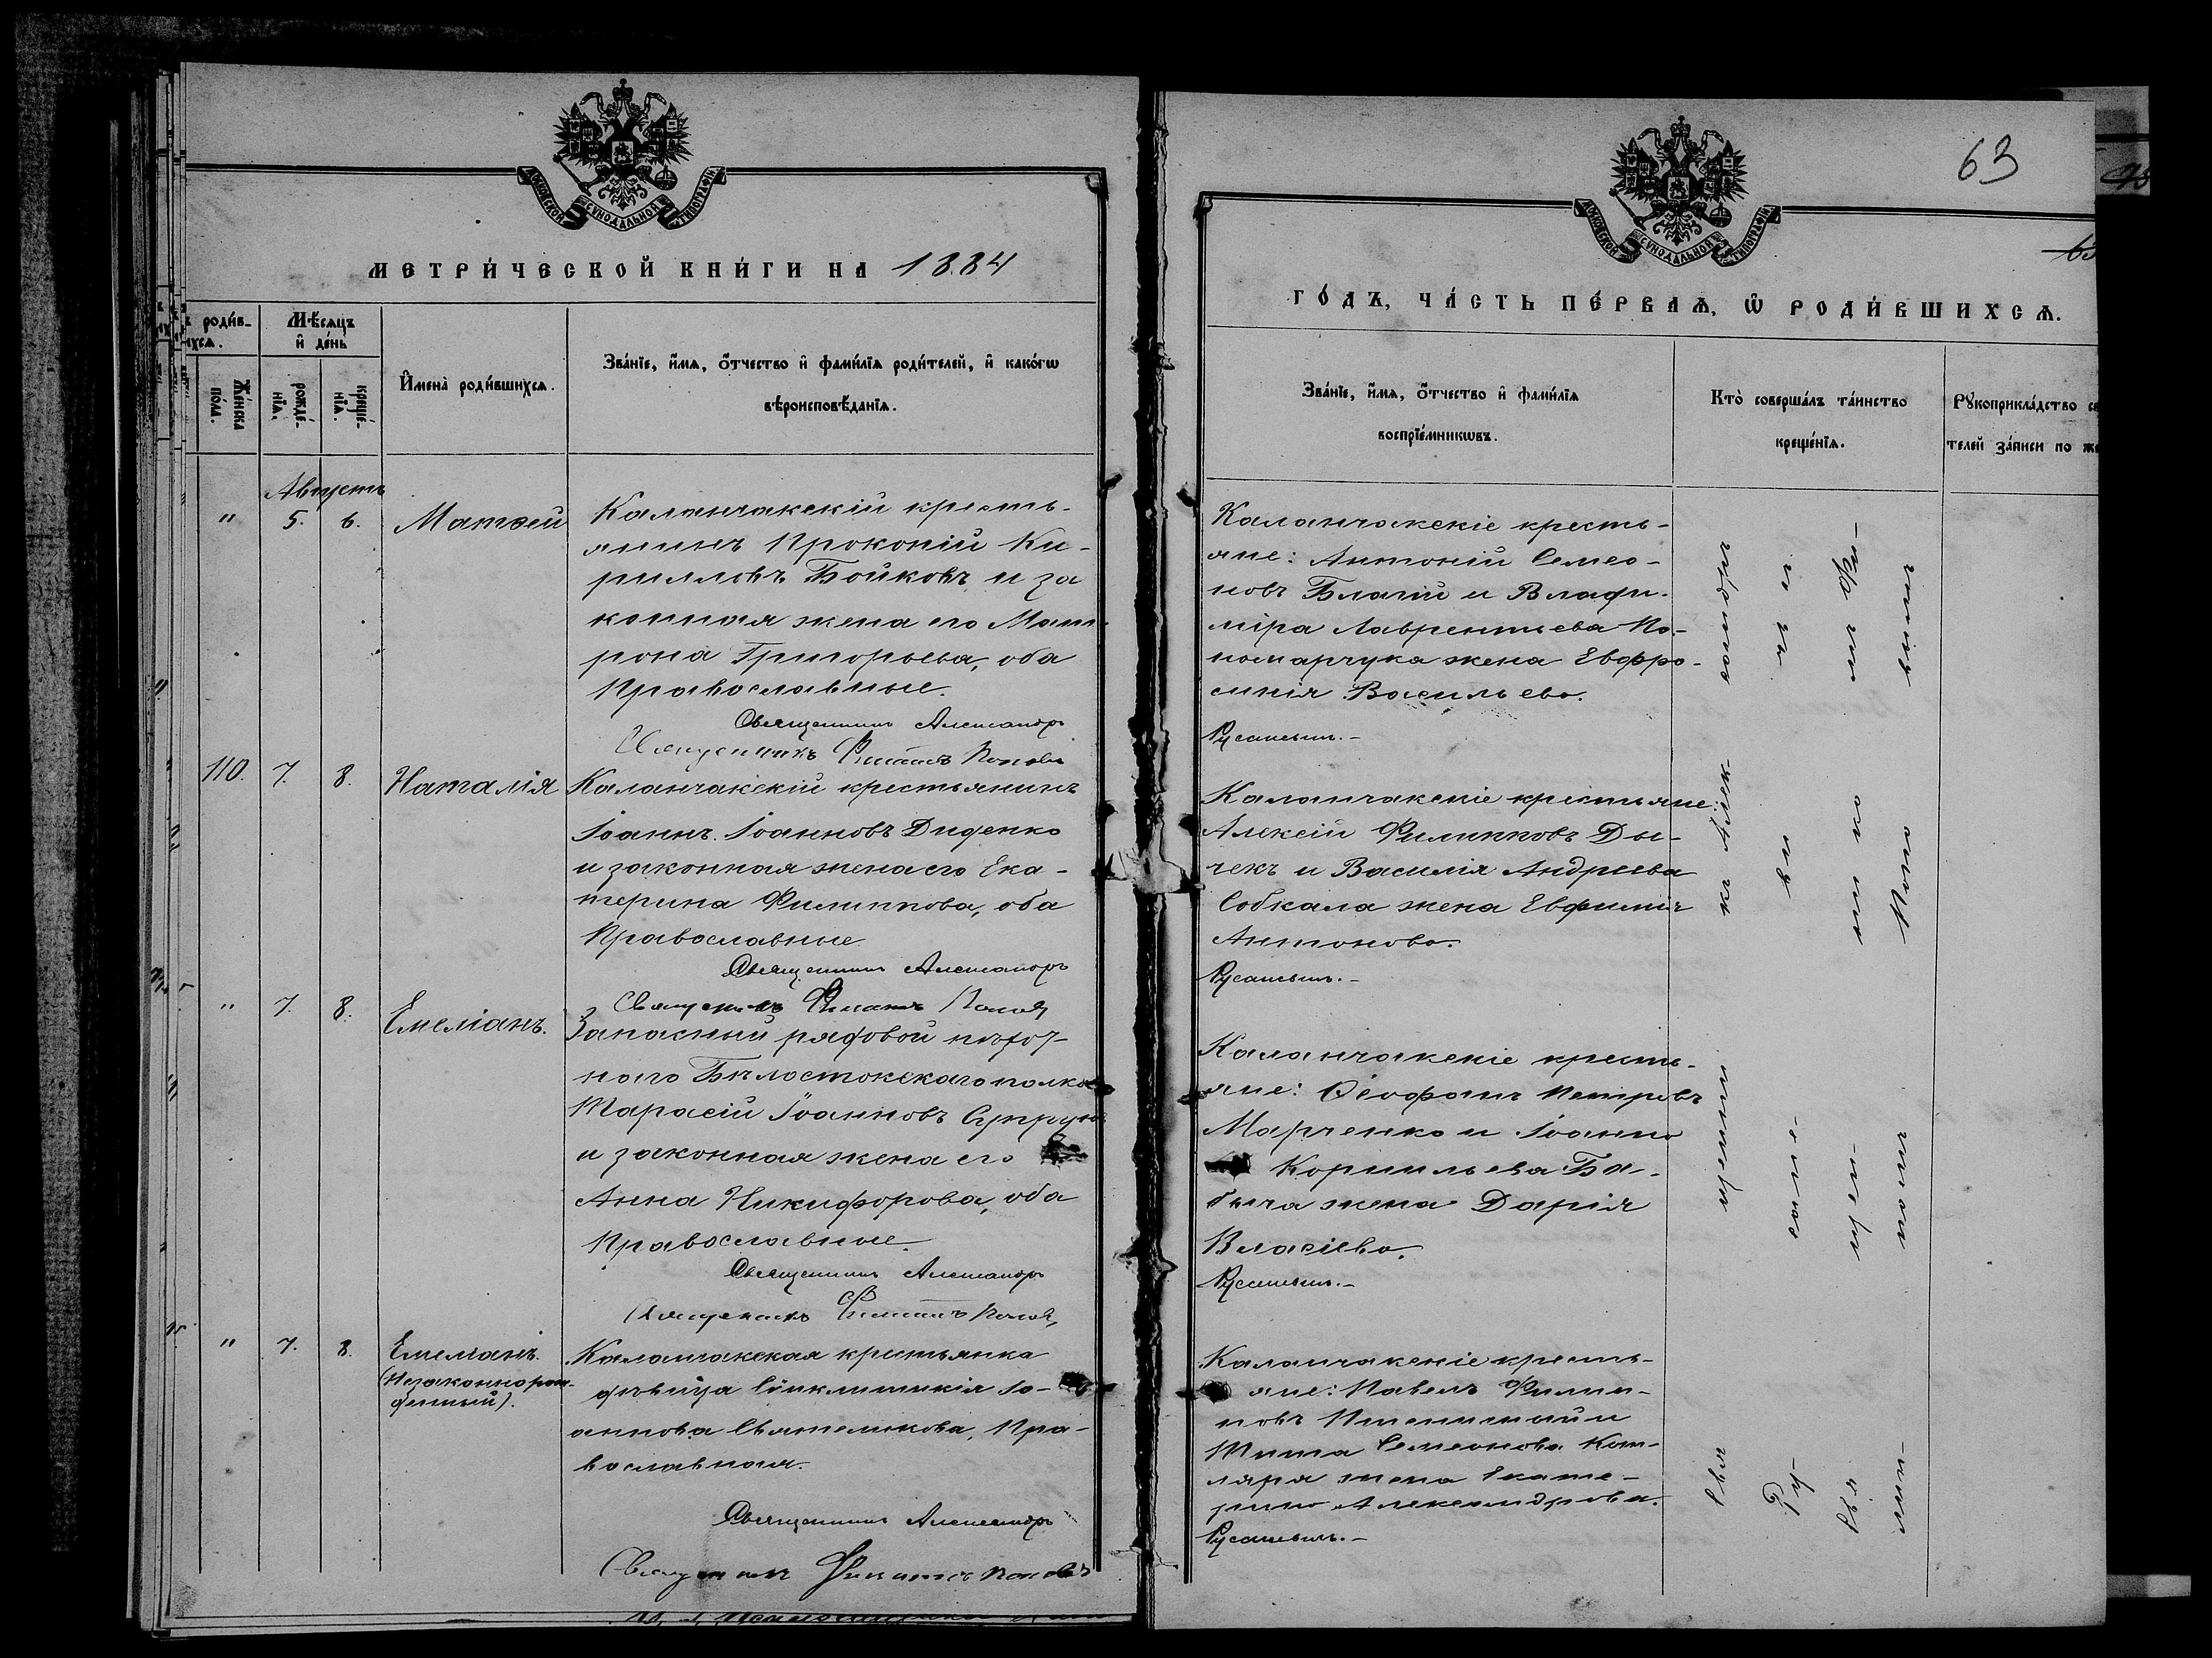 МОСКОВСКОЙ СѴНОДАЛЬНОЙ ТИПОГРАФІИ
МЕТРИ́ЧЕСКОЙ КНИ́ГИ НА 1884
роди́в-
шихсѧ.
Же́нска по́ла.
Мѣ́сѧцъ и҆ де́нь
рожде́-нїѧ.
креще́-нїѧ.
И҆мена̀ роди́вшихсѧ.
Зва́нїе, и҆́мѧ, ѻ҆́тчество и҆ фами́лїѧ роди́телей, и҆ како́гѡ
вѣроисповѣ́данїѧ.
Августъ
" 5. 6. Матѳей
Каланчакскій кресть-
янинъ Прокопій Ки-
рилловъ Бойковъ и за
конная жена его Мат-
рона Григорьева, оба
Православные.
Священникъ Александръ
Священникъ Филиппъ Поповъ
110. 7. 8. Наталія
Каланчакскій крестьянинъ
Іоаннъ Іоанновъ Диденко
и законная жена его Ека-
терина Филиппова, оба
Православные
Священникъ Александръ
Священникъ Филиппъ Поповъ
" 7. 8. Емеліанъ.
Запасный рядовой пѣхот-
наго Бѣлостокскаго полка
Тарасій Іоанновъ Супрунъ
и законная жена его
Анна Никифорова, оба
Православные.
Священникъ Александръ
Священникъ Филиппъ Поповъ
" 7. 8. Емеліанъ.
(Незаконнорож-
денный).
Каланчакская крестьянка
дѣвица Сѵнклитикія Іо-
аннова Святеликова, Пра-
вославная.
Священникъ Александръ
Священникъ Филиппъ Поповъ
63
МОСКОВСКОЙ СѴНОДАЛЬНОЙ ТИПОГРАФІИ
ГО́ДЪ, ЧА́СТЬ ПЕ́РВАѦ, Ѡ҆ РОДИ́ВШИХСѦ.
Зва́нїе, и҆́мѧ, ѻ҆́тчество и҆ фами́лїѧ
воспрїе́мникѡвъ.
Кто̀ соверша́лъ та́инство
креще́нїѧ.
Рꙋкоприкла́дство св
телей за́писи по же
Каланчакскіе кресть-
яне: Антоній Семео-
новъ Благій и Влади-
міра Лаврентьева По-
номарчука жена Евфро-
синія Васильева.
Русаневичъ.-
Каланчакскіе крестьяне:
Алексій Филипповъ Ды-
чекъ и Василія Андреева
Собкала жена Евфимія
Антонова.
Русаневичъ.-
Каланчакскіе кресть-
яне: Ѳеофанъ Петровъ
Марченко и Іоанна
Корнильева Ба-
быча жена Дарія
Власіева.
Русаневичъ.-
Каланчакскіе кресть-
яне: Павелъ Филип-
повъ Пшеничный и
Тита Семеонова Кот-
ляра жена Екате-
рина Александрова.
Русаневичъ.-